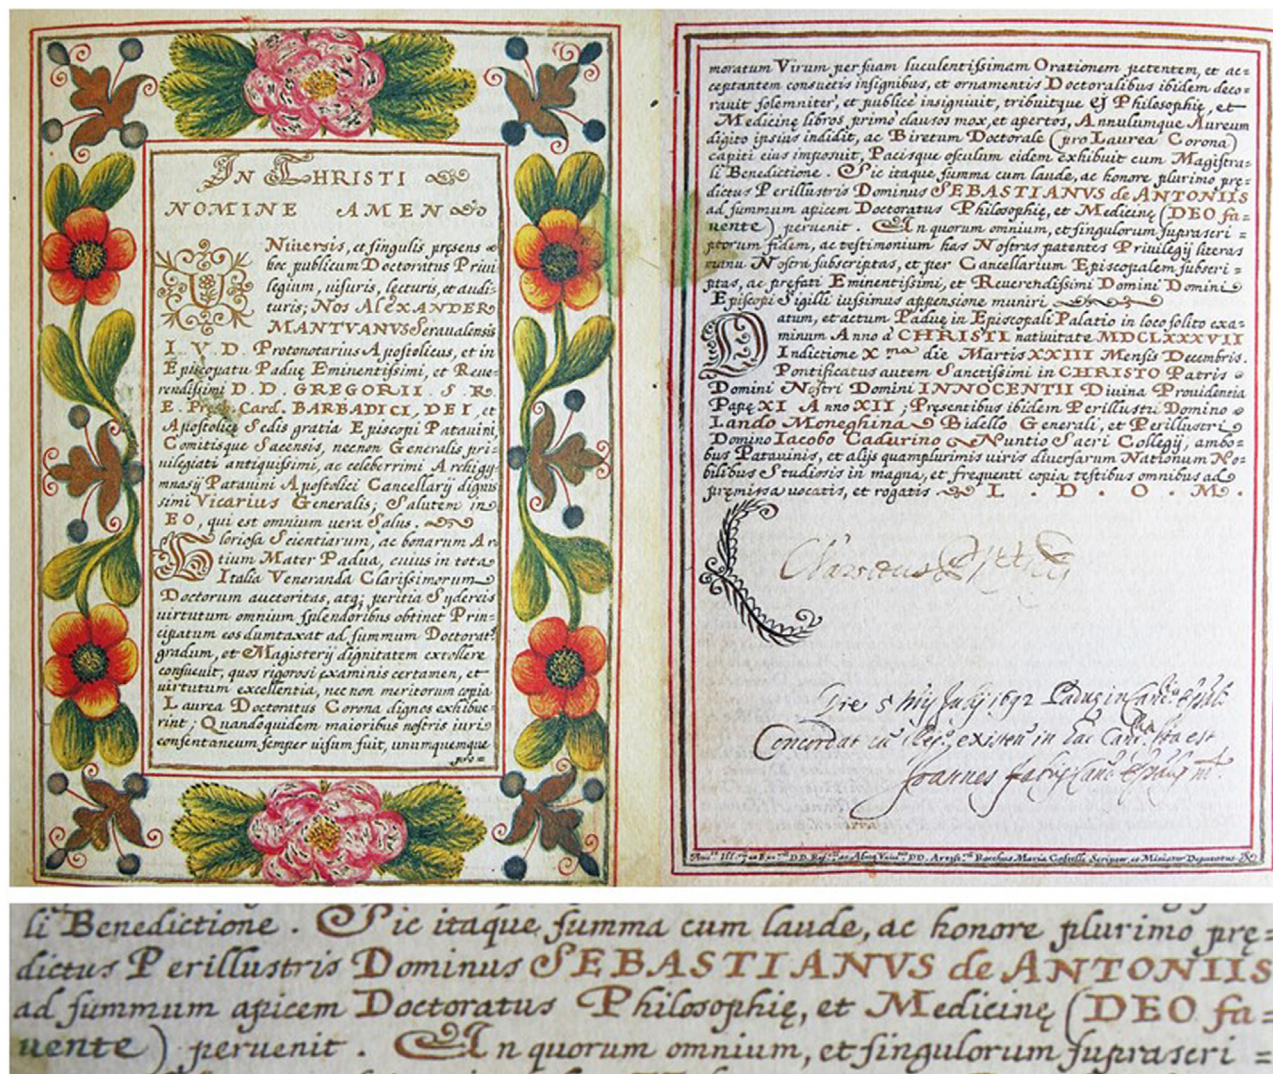 IN CHRISTI
NOMINE AMEN
VNiuersis, et singulis presens
hoc publicum Doctoratus Priui
legium, uisuris, lecturis, et audi-
turis; Nos ALEXANDER
MANTVANVS Serauallensis
I. V. D. Protonotarius Apostolicus, et in
Episcopatu Paduę Eminentissimi, et Reue-
rendissimi D. D. GREGORII . S . R .
E. Card. BARBADICI, DEI, et
Apostolicę Sedis gratia Episcopi Patauini,
Comitisque Sacensis, necnon Generalis pri-
uilegiati antiquissimi, ac celeberrimi Archigy-
mnasij Patauini Apostolici Cancellarij dignis
simi Vicarius Generalis; Salutem in
EO, qui est omnium uera Salus.
Gloriosa Scientiarum, ac bonarum Ar
tium Mater Padua, cuius in tota
Italia Veneranda Clarissimorum
Doctorum auctoritas, atq; peritia Sydereis
uirtutum omnium splendoribus obtinet Prin-
cipatum eos dumtaxat ad summum Doctorat9
gradum, et Magisterij dignitatem extollere
consueuit, quos rigorosi examinis certamen, et
uirtutum excellentia, nec non meritorum copia
Laurea Doctoratus Corona dignos exhibue-
rint; Quandoquidem maioribus nostris iuri
consentaneum semper uisum fuit, unumquemque
pro=
moratum Virum per suam luculentissimam Orationem petentem, et ac=
ceptantem consuetis insignibus, et ornamentis Doctoralibus ibidem deco=
rauit solemniter, et publicè insigniuit, tribuitque ej Philosophię, et
Medicinę libros primo clausos mox, et apertos, Annulumque Aureum
digito ipsius indidit, ac Biretum Doctorale (pro Laurea Corona)
capiti eius imposuit, Pacisque osculum eidem exhibuit cum Magistra-
li Benedictione. Sic itaque summa cum laude, ac honore plurimo prę=
dictus Perillustris Dominus SEBASTIANVS de ANTONIIS
ad summum apicem Doctoratus Philosophię, et Medicinę (DEO fa=
uente) peruenit. In quorum omnium, et singulorum suprascri =
ptorum fidem, ac testimonium has Nostras patentes Priuilegij literas
manu Nostra subscriptas, et per Cancellarium Episcopalem subscri =
ptas, ac pręfati Eminentissimi, et Reuerendissimi Domini Domini
Episcopi Sigilli iussimus appensione muniri
Datum, et actum Paduę in Episcopali Palatio in loco solito exa=
minum Anno à CHRISTI natiuitate MDCLXXXVII
Indictione X ma die Martis XXIII Mensis Decembris.
Pontificatus autem Sanctissimi in CHRISTO Patris
Domini Nostri Domini INNOCENTII Diuina Prouidentia
Papę XI Anno XII; Pręsentibus ibidem Perillustri Domino
Lando Moneghina Bidello Generali, et Perillustri
Domino Iacobo Cadurino Nuntio Sacri Collegij, ambo=
bus Patauinis, et alijs quamplurimis uiris diuersarum Nationum No=
bilibus Studiosis in magna, et frequenti copia testibus omnibus ad
pręmissa uocatis, et rogatis L . D . O . M .
Die 5 July 1692
Concordat existen in Can. Ita est
Joannes
Rocchus Maria Costelli Scriptor, et Minister Deputatus
li Benedictione. Sic itaque summa cum laude, ac honore plurimo prę=
dictus Perillustris Dominus SEBASTIANVS de ANTONIIS
ad summum apicem Doctoratus Philosophię, et Medicinę (DEO fa=
uente) peruenit. In quorum omnium, et singulorum suprascri =